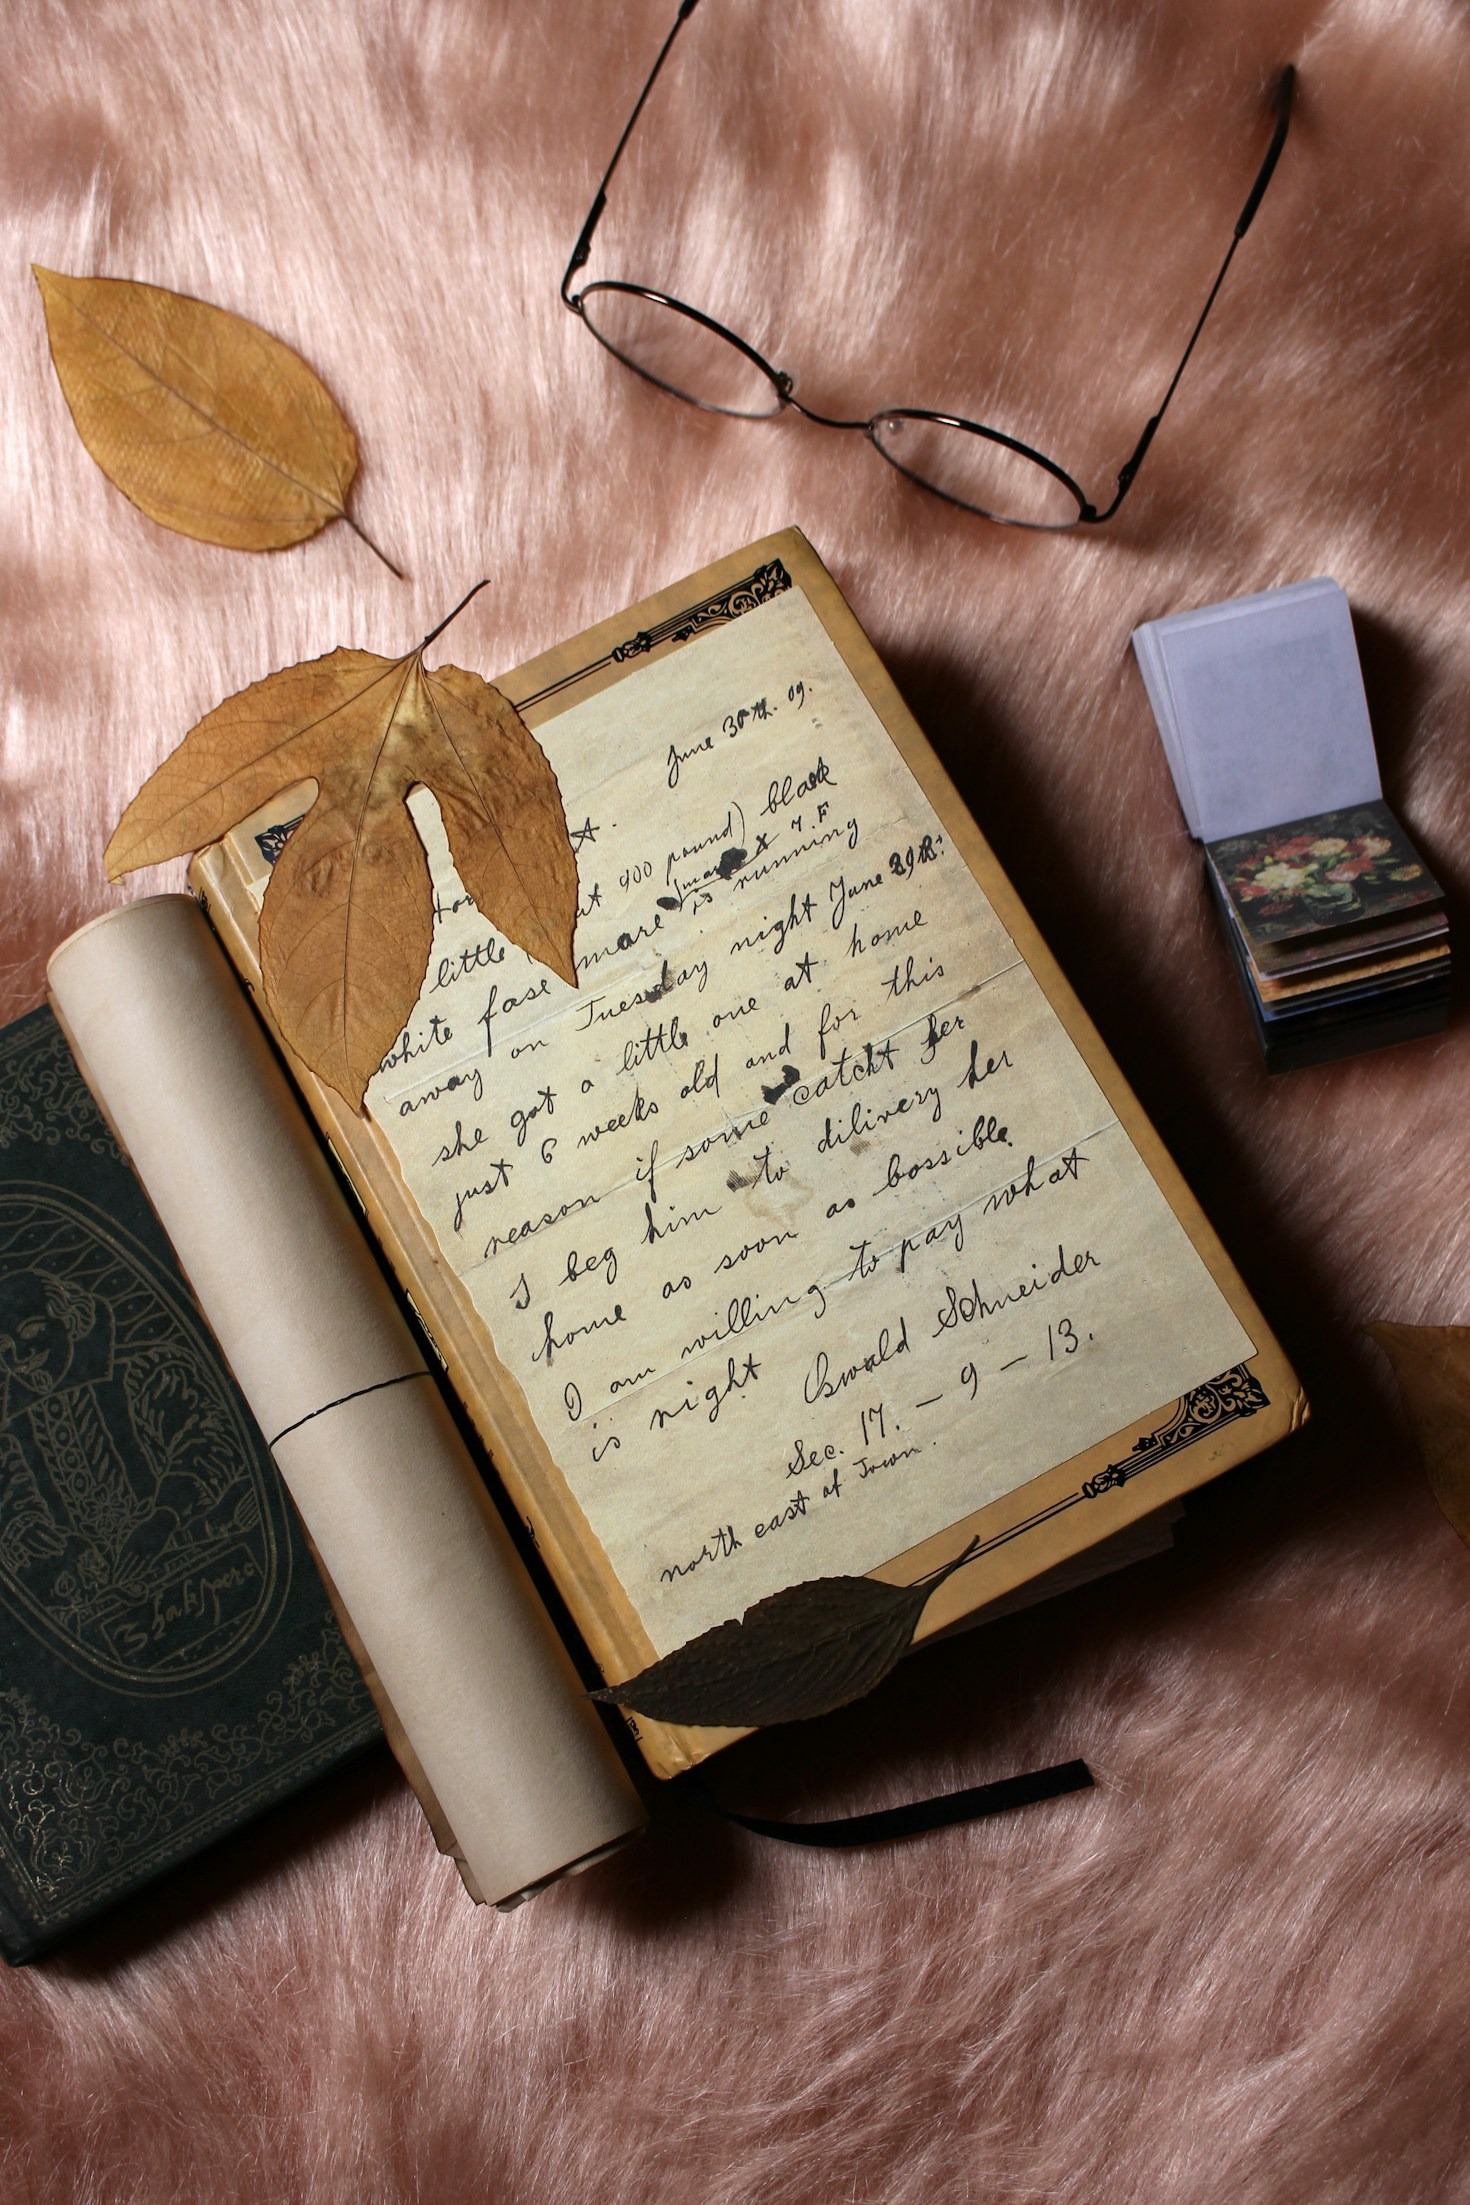 June 30th. 09.
little 900 pound) black
white fase mare is running
away on Tuesday night June 29th.
she got a little one at home
just 6 weeks old and for this
reason if some catcht her
I beg him to dilivery her
home as soon as bossible.
I am willing to pay what
is right Oswald Schneider
Sec. 17. – 9 – 13.
north east of Town.